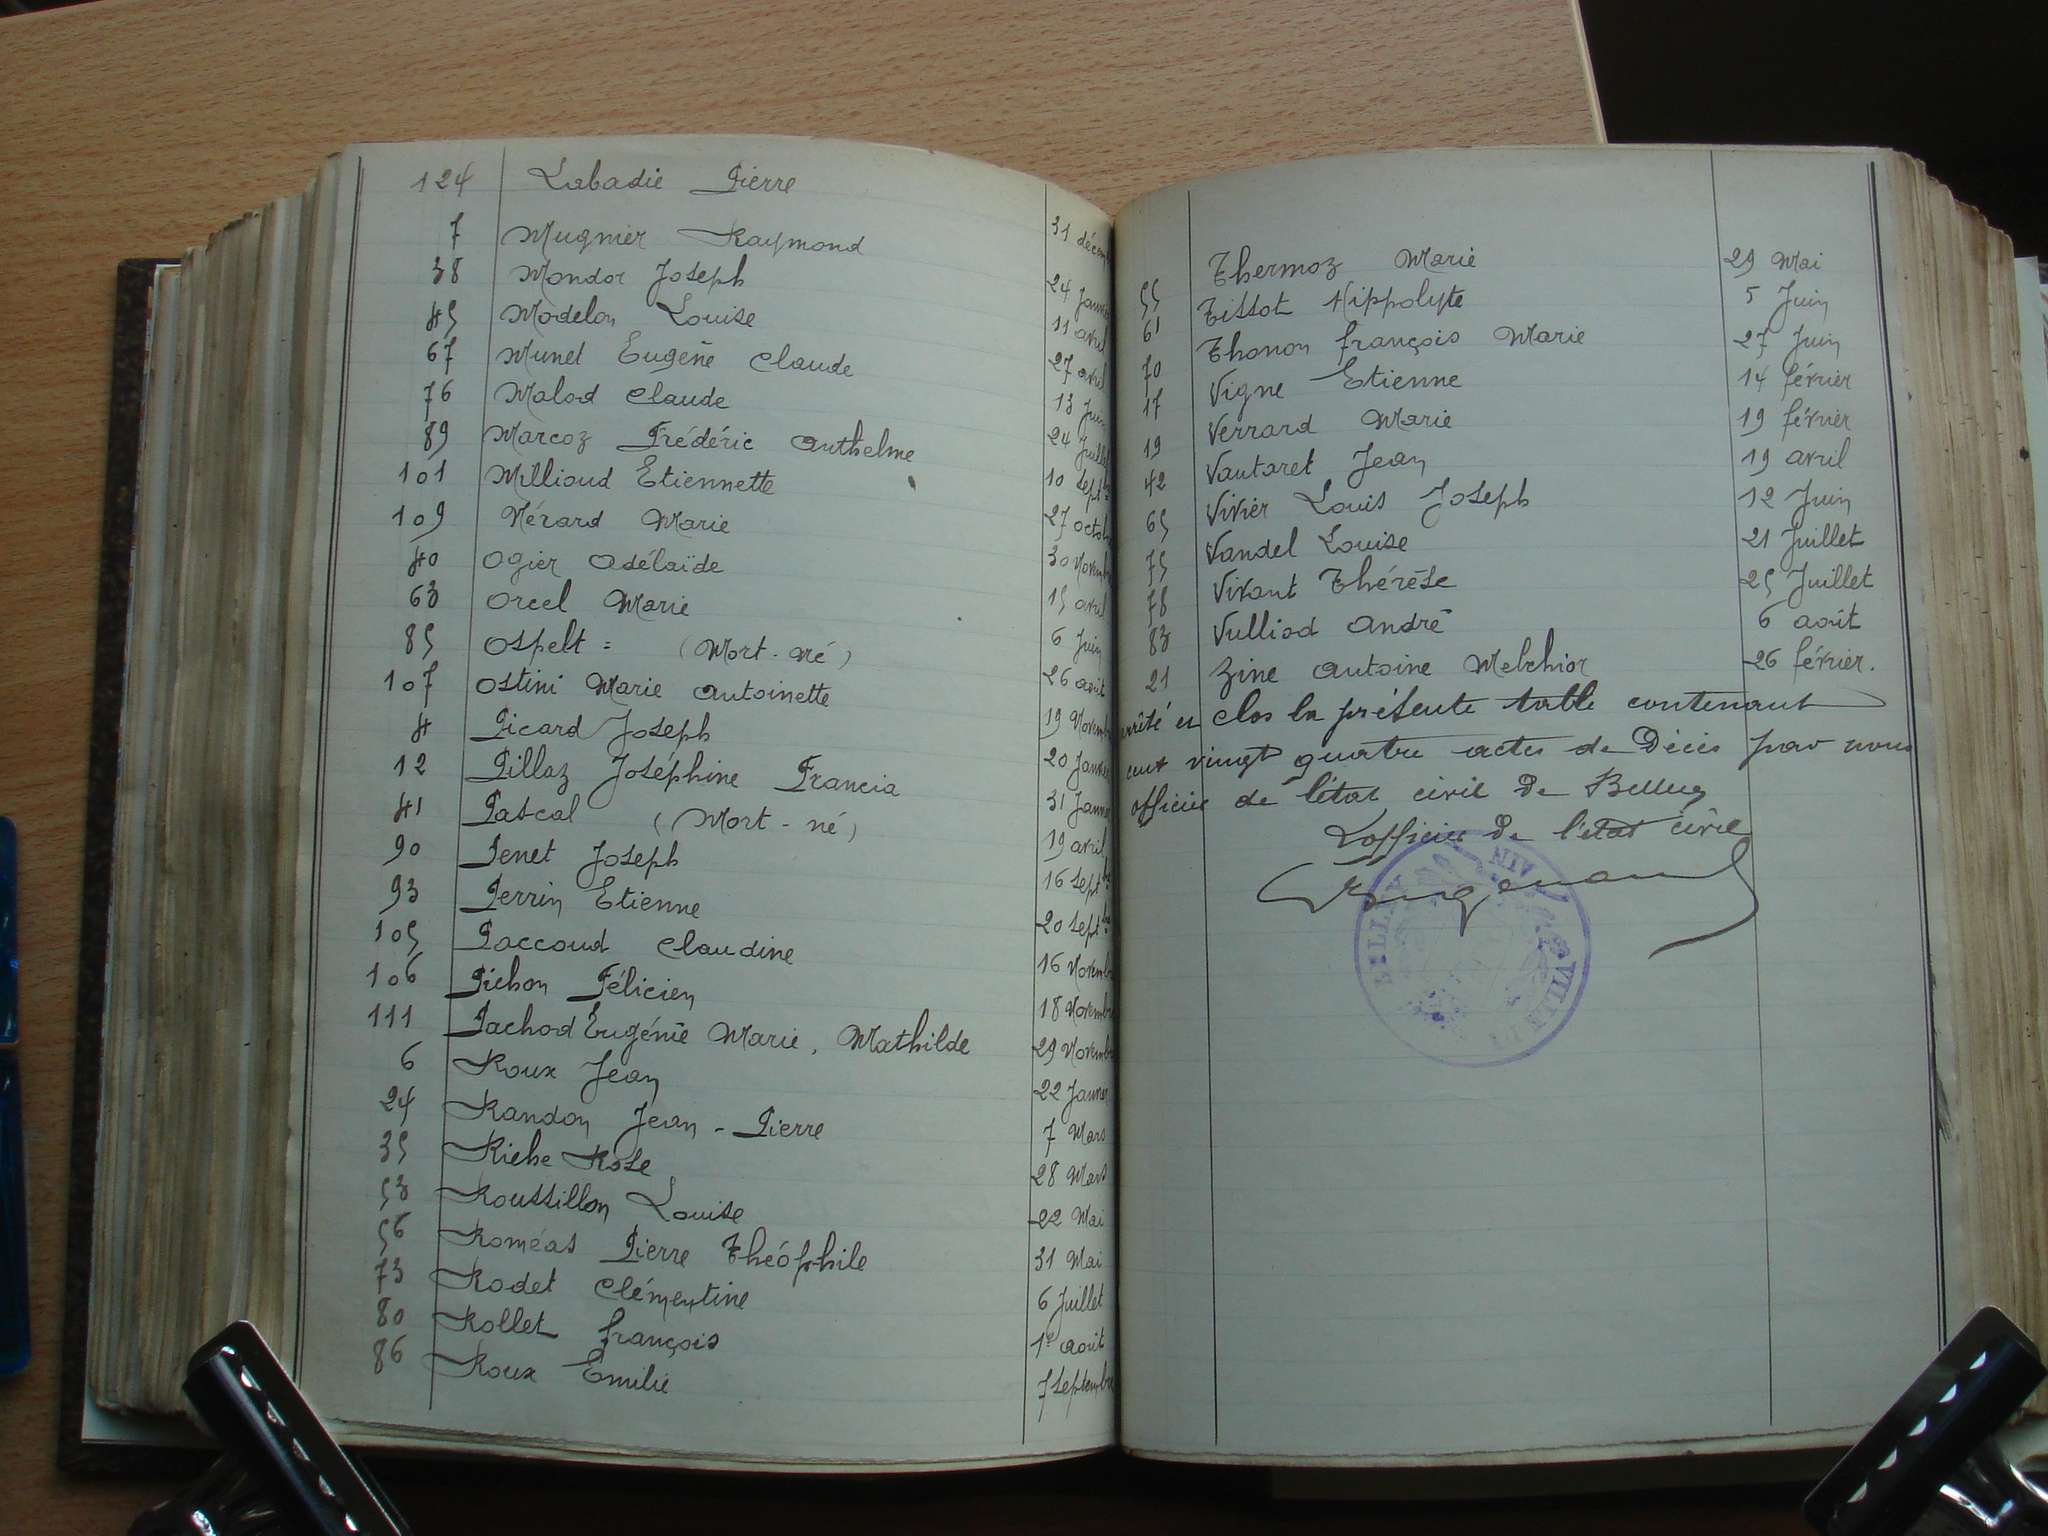 124 Labadie Pierre 31 décem
7 Mugnier Raymond 24 Janvie
38 Mondor Joseph 11 avril
45 Modelon Louise 27 avril
67 Munet Eugène Claude 13 Juin
76 Malod Claude 24 Juillet
89 Marcoz Frédéric Anthelme 10 Sept.bre
101 Millioud Etiennette 27 octob
109 Nérard Marie 30 Novemb
40 Ogier Adélaïde 15 avril
63 Orcel Marie 6 Juin
85 Ospelt = (Mort-né) 26 août
107 Ostini Marie Antoinette 19 Novemb
4 Picard Joseph 20 Janvie
12 Pillaz Joséphine Francia 31 Janvie
41 Pascal (Mort-né) 19 avril
90 Penet Joseph 16 Sept.bre
93 Perrin Etienne 20 Sept.bre
105 Paccoud Claudine 16 Novemb
106 Pichon Félicien 18 Novemb
111 Pachod Eugénie Marie, Mathilde 29 Novemb
6 Roux Jean 22 Janvier
24 Randon Jean-Pierre 7 Mars
35 Riche Rose 28 Mars
53 Roussillon Louise 22 Mai
56 Roméas Pierre Théophile 31 Mai
73 Rodet Clémentine 6 Juillet
80 Rollet François 1er août
86 Roux Emilie 7 Septembre
55 Thermoz Marie 29 Mai
61 Tissot Hippolyte 5 Juin
70 Thonon François Marie 27 Juin
17 Vigne Etienne 14 février
19 Verrard Marie 19 février
42 Vautaret Jean 19 avril
65 Vivier Louis Joseph 12 Juin
75 Vandel Louise 21 Juillet
78 Vivant Thérèse 25 Juillet
83 Vulliod André 6 août
21 Zine Antoine Melchior 26 février.
arrêté et clos la présente table contenant
cent vingt quatre actes de Décès par nous
officier de l'état civil de Belley
L'officier de l'état civil
VILLE DE BELLEY AIN